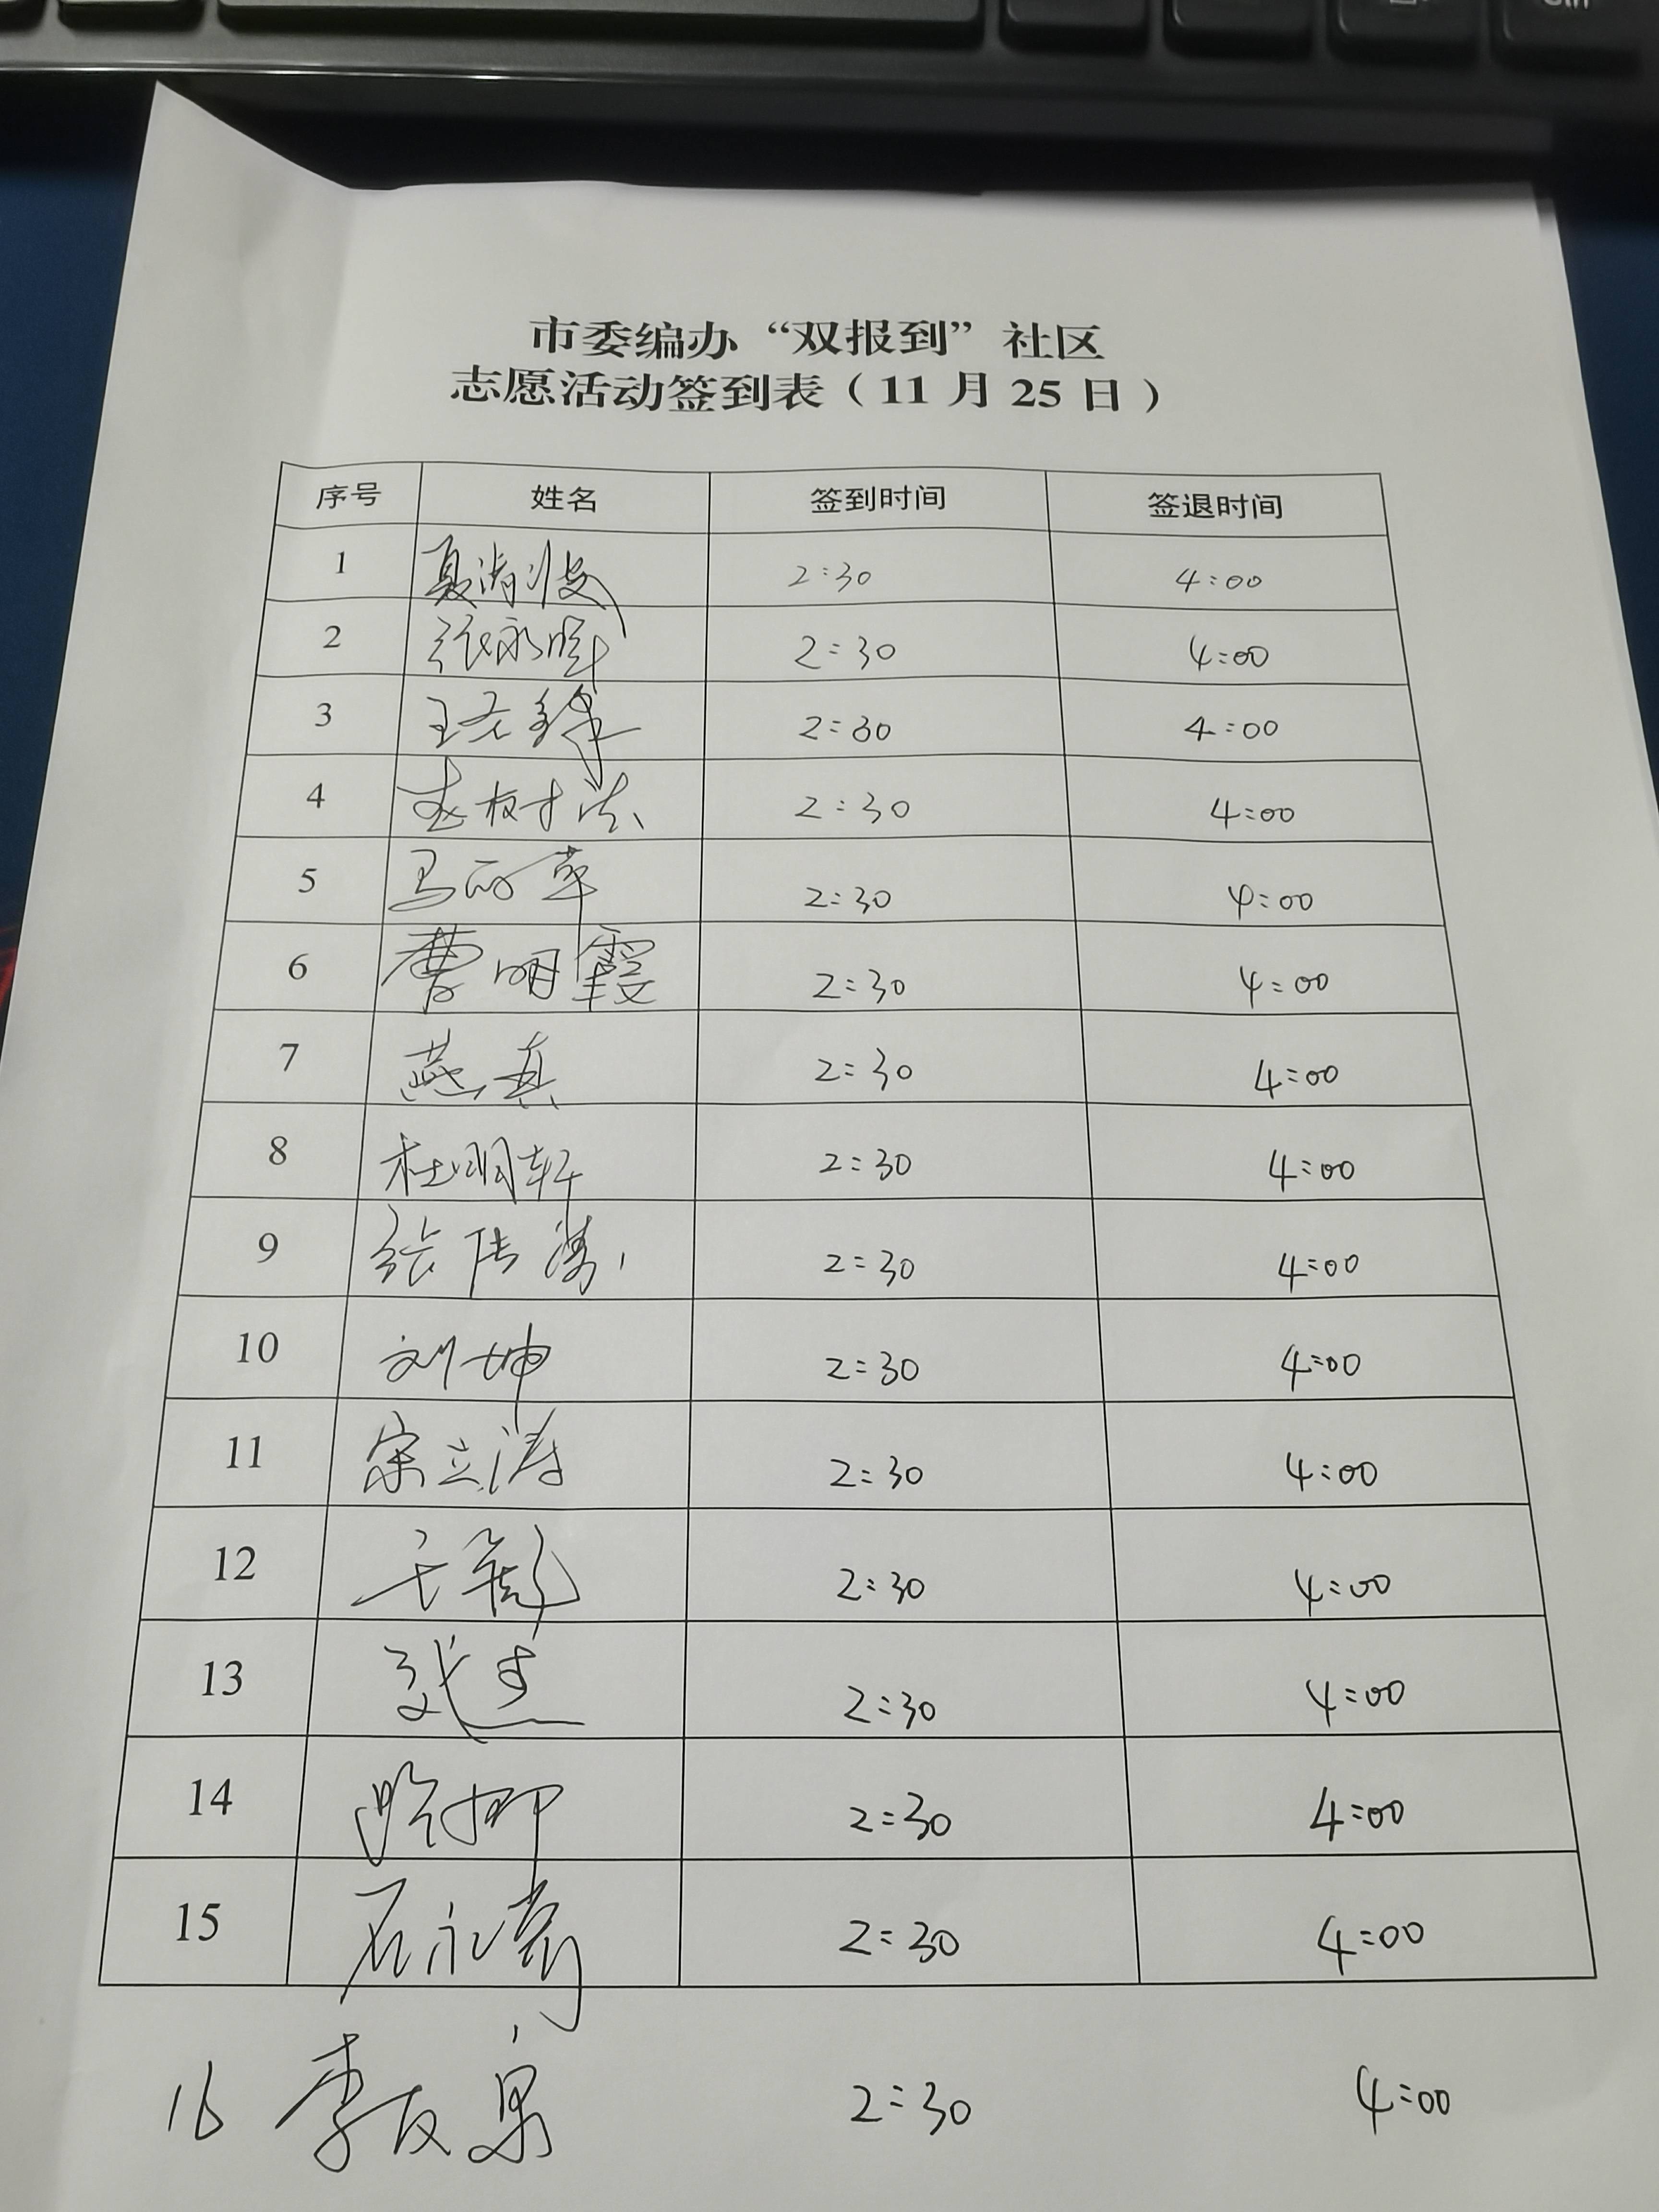 市委编办“双报到”社区
志愿活动签到表（11月25日）
序号 姓名 签到时间 签退时间
1 2:30 4:00
2 2:30 4:00
3 2:30 4:00
4 2:30 4:00
5 2:30 4:00
6 曹明霞 2:30 4:00
7 燕真 2:30 4:00
8 杜明轩 2:30 4:00
9 2:30 4:00
10 刘坤 2:30 4:00
11 宋立涛 2:30 4:00
12 2:30 4:00
13 2:30 4:00
14 2:30 4:00
15 2:30 4:00
16 2:30 4:00